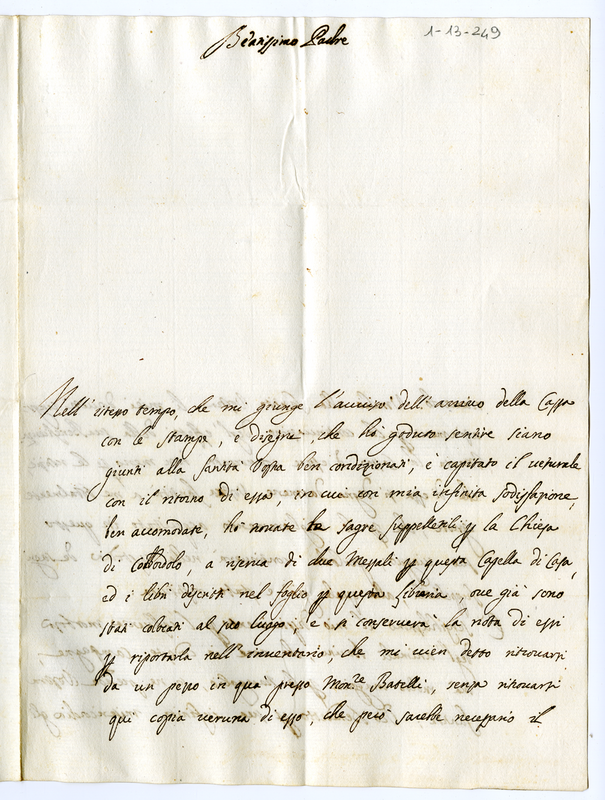 Beatissimo Padre
1-13-249
Nell' istesso tempo, che mi giunge l'auuiso dell' arriuo della Cassa
con le stampe, e disegni, che hò goduto sentire siano
giunti alla Santità Vostra ben condizionati, è capitato il uetturale
con il ritorno di essa, in cui con mia infinita sodisfazione,
ben accomodate, hò trouate le sagre suppellettili p la Chiesa
di, a riserua di due Messali p questa Capella di Casa,
ed i libri descritti nel foglio p questa libraria oue già sono
stati collocati al suo luogo, e si conseruerà la nota di essi
p riportarla nell' inuentario, che mi uien detto ritrouarsi
da un pezzo in quà presso Mon.re Batelli, senza ritrouarsi
qui copia ueruna di esso, che però sarebbe necessario il